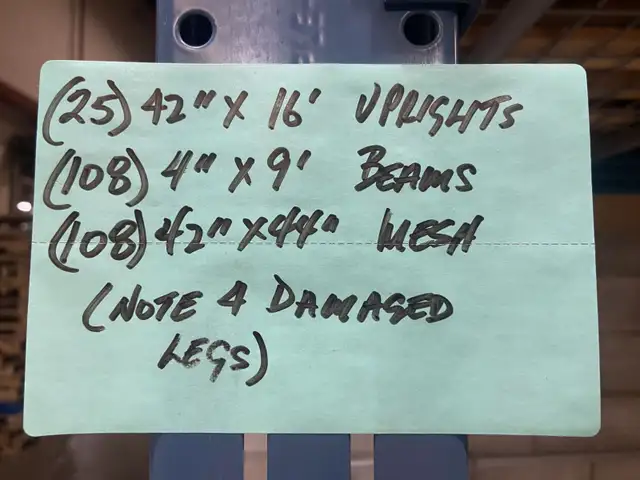 (25) 42" X 16' UPRIGHTS
(108) 4" X 9' BEAMS
(108) 42" X 44" MESH
(NOTE 4 DAMAGED
LEGS)